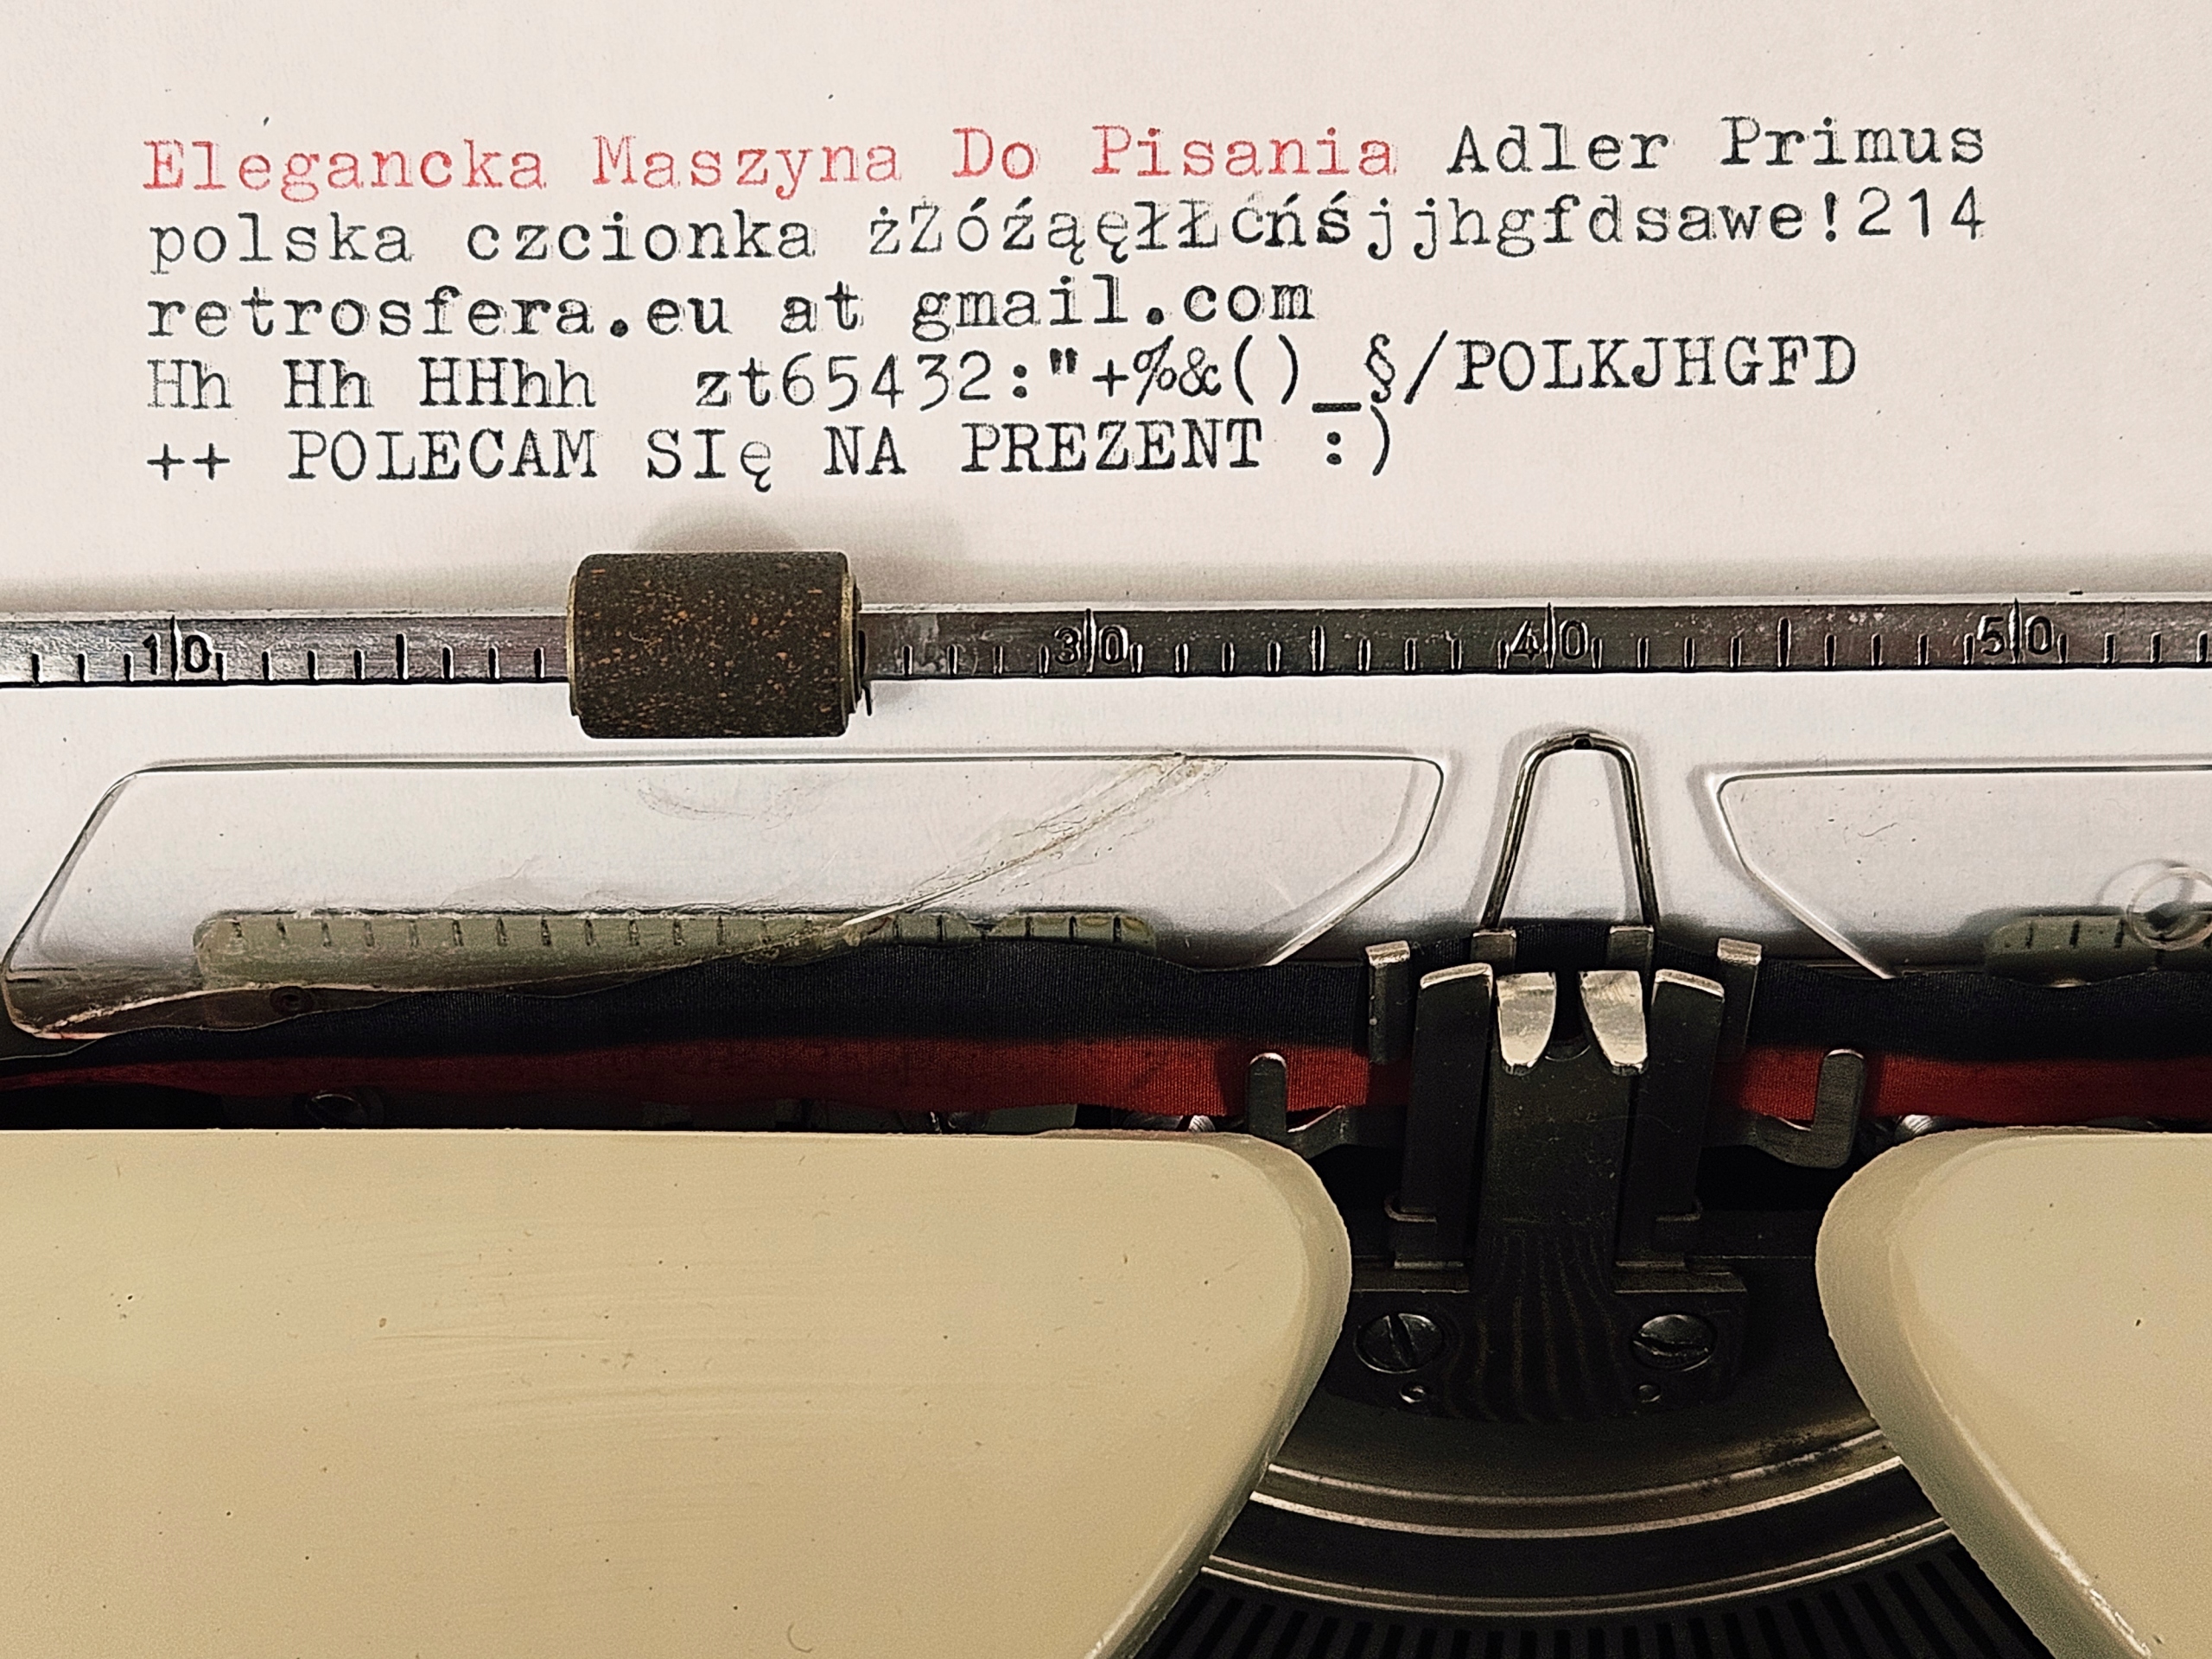 Elegancka Maszyna Do Pisania Adler Primus
polska czcionka żŻóźąęłŁćńśjjhgfdsawe!214
retrosfera.eu at gmail.com
Hh Hh HHhh  zt65432:"+%&()_§/POLKJHGFD
++ POLECAM SIę NA PREZENT :)
10 30 40 50